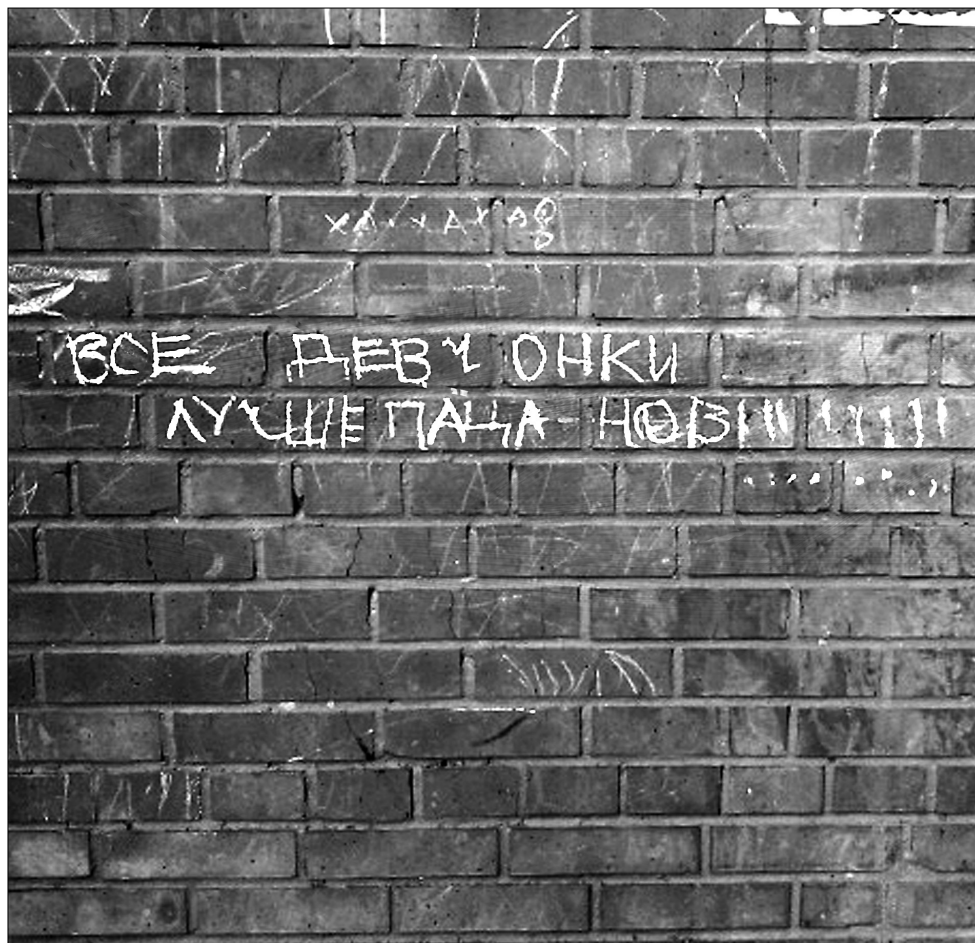 ХАХХАХАВ
ВСЕ ДЕВЧОНКИ
ЛУЧШЕ ПАЦА-НОВ!!!!!!!!